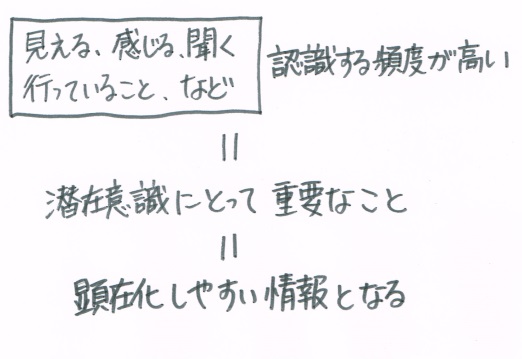 見える、感じる、聞く
行っていること、など
認識する頻度が高い
||
潜在意識にとって重要なこと
||
顕在化しやすい情報となる